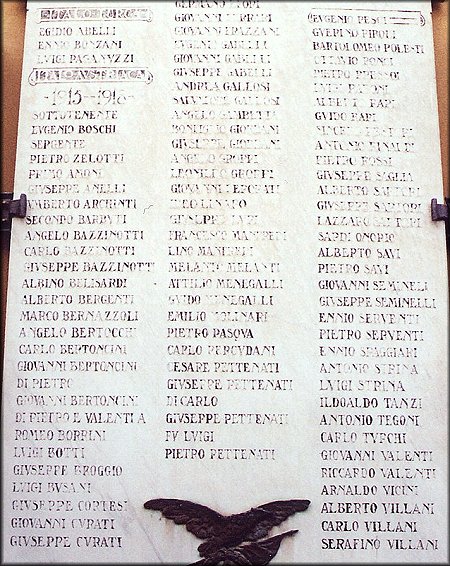 EGIDIO ABELLI
ENNIO BONZANI
LUIGI PAGANUZZI
ITALO AUSTRIACA
1915-1918
SOTTOTENENTE
EUGENIO BOSCHI
SERGENTE
PIETRO ZELOTTI
PRIMO AMONI
GIUSEPPE ANELLI
UMBERTO ARCHENTI
SECONDO BARBUTI
ANGELO BAZZINOTTI
CARLO BAZZINOTTI
GIUSEPPE BAZZINOTTI
ALBINO BELISARDI
ALBERTO BERGENTI
MARCO BERNAZZOLI
ANGELO BERTOCCHI
CARLO BERTONCINI
GIOVANNI BERTONCINI
DI PIETRO
GIOVANNI BERTONCINI
DI PIETRO E VALENTI A
ROMEO BORRINI
LUIGI BOTTI
GIUSEPPE BROGGIO
LUIGI BUSANI
GIUSEPPE CORTESI
GIOVANNI CURATI
GIUSEPPE CURATI
GIOVANNI
GIOVANNI FRAZZANI
EUGENI GABELLI
GIOVANNI GABELLI
GIUSEPPE GABELLI
ANDREA GALLOSI
SALVATORE GALLOSI
ANGELO GAMBETTI
BONFIGLIO GIORDANI
GIUSEPPE GIORDANI
ANGELO GROPPI
LEONILDO GROPPI
GIOVANNI
GIUSEPPE
FRANCESCO
LINO
MELANIO MELANTI
ATTILIO MENEGALLI
GUIDO MENEGALLI
EMILIO MOLINARI
PIETRO PASQUA
CARLO PERCUDANI
CESARE PETTENATI
GIUSEPPE PETTENATI
DI CARLO
GIUSEPPE PETTENATI
FU LUIGI
PIETRO PETTENATI
EUGENIO PESCI
GUERINO PIROLI
BARTOLOMEO POLESTI
PIETRO
LUIGI
ALBERTO RAPI
GUIDO RAPI
ANTONIO RINALDI
PIETRO ROSSI
GIUSEPPE SAGLIA
ALBERTO SARTORI
GIUSEPPE SARTORI
LAZZARO SARTORI
SARDI ONORIO
ALBERTO SAVI
PIETRO SAVI
GIOVANNI SEMINELLI
GIUSEPPE SEMINELLI
ENNIO SERVENTI
PIETRO SERVENTI
ENNIO SPAGGIARI
ANTONIO STRINA
LUIGI STRINA
ILDOALDO TANZI
ANTONIO TEGONI
CARLO TURCHI
GIOVANNI VALENTI
RICCARDO VALENTI
ARNALDO VICINI
ALBERTO VILLANI
CARLO VILLANI
SERAFINO VILLANI